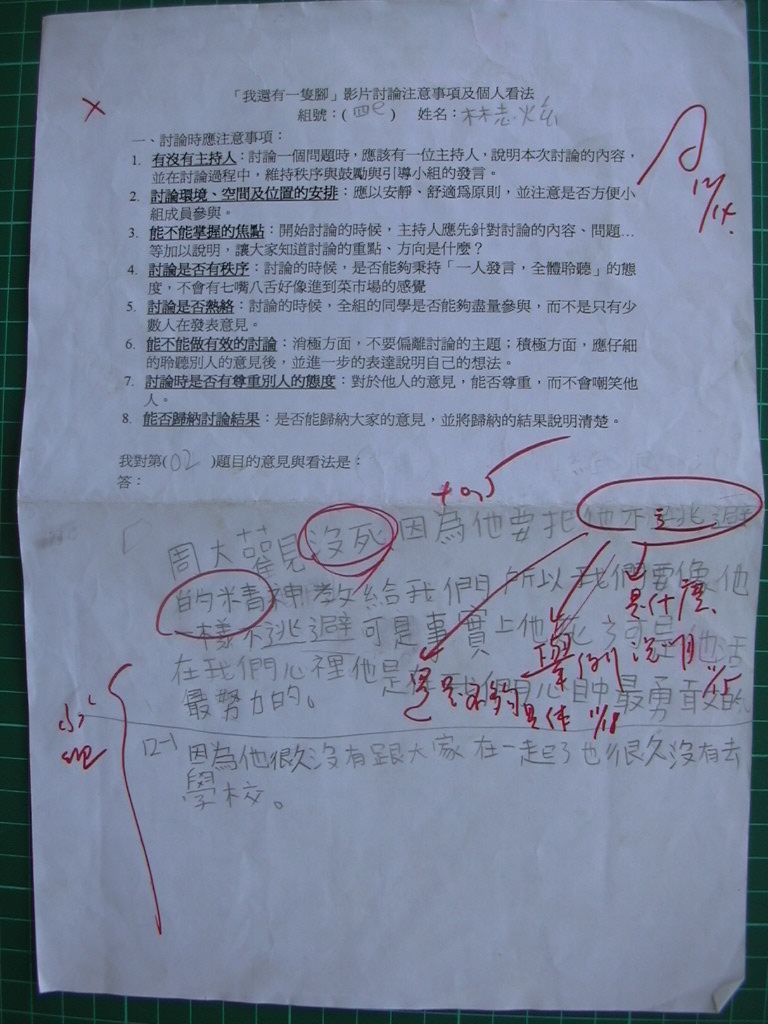 「我還有一隻腳」影片討論注意事項及個人看法
組號：(四e) 姓名：林志
一、討論時應注意事項：
1. 有沒有主持人：討論一個問題時，應該有一位主持人，說明本次討論的內容，
並在討論過程中，維持秩序與鼓勵與引導小組的發言。
2. 討論環境、空間及位置的安排：應以安靜、舒適為原則，並注意是否方便小
組成員參與。
3. 能不能掌握的焦點：開始討論的時候，主持人應先針對討論的內容、問題…
等加以說明，讓大家知道討論的重點、方向是什麼？
4. 討論是否有秩序：討論的時候，是否能夠秉持「一人發言，全體聆聽」的態
度，不會有七嘴八舌好像進到菜市場的感覺
5. 討論是否熱絡：討論的時候，全組的同學是否能夠盡量參與，而不是只有少
數人在發表意見。
6. 能不能做有效的討論：消極方面，不要偏離討論的主題；積極方面，應仔細
的聆聽別人的意見後，並進一步的表達說明自己的想法。
7. 討論時是否有尊重別人的態度：對於他人的意見，能否尊重，而不會嘲笑他
人。
8. 能否歸納討論結果：是否能歸納大家的意見，並將歸納的結果說明清楚。
A
12/14.
我對第(02)題目的意見與看法是：
答：
+0.5
周大觀沒死因為他要把他不逃避
的精神教給我們所以我們要像他
是什麼
一樣不逃避可是事實上他死了可是他活
舉例說明 11/15
在我們心裡他是在我們心中最勇敢的
還是不夠具體 11/18
最努力的。
12-1 因為他很久沒有跟大家在一起了也很久沒有去
學校。